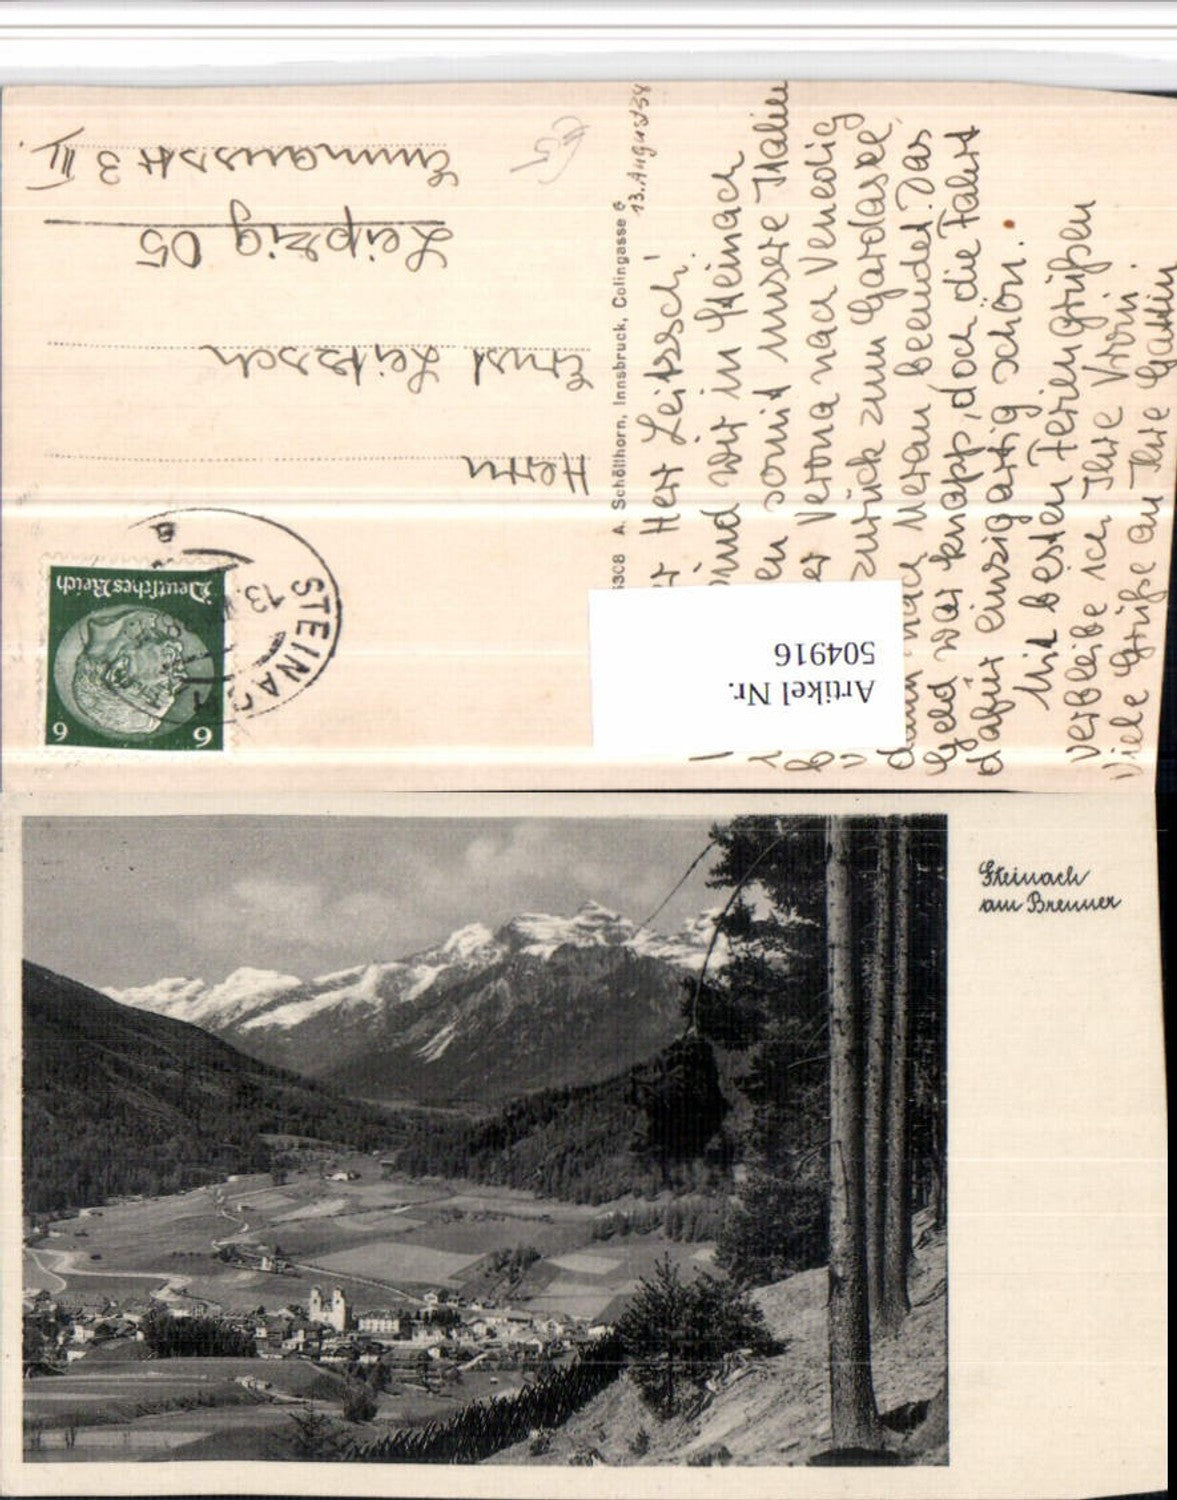 13. August 38
Herr Leitzsch!
sind wir in Steinach
somit unsere Italien
Verona nach Venedig
zurück zum Gardasee,
dann nach Meran beendet. Das
Geld war knapp, doch die Fahrt
dafür einzigartig schön.
Mit besten Feriengrüßen
verbleibe ich Ihre Vroni.
Viele Grüße an Ihre Gattin
A. Schöllhorn, Innsbruck, Colingasse 6
Deutsches Reich
6 6
STEINACH
13.
Herrn
Ernst Leitzsch
Leipzig O5
Emmausstr 3 III.
Artikel Nr.
504916
Steinach
am Brenner